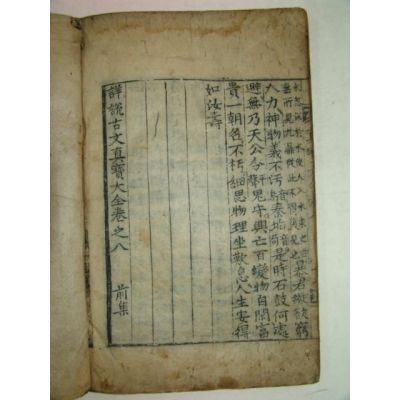 暴君縱欲窮
人力神物義不汚秦垢是時石鼓何處
避無乃天公令鬼守興亡百變物自閒富
貴一朝名不朽細思物理坐歎息人生安得
如汝壽
詳說古文真寶大全卷之八 前集